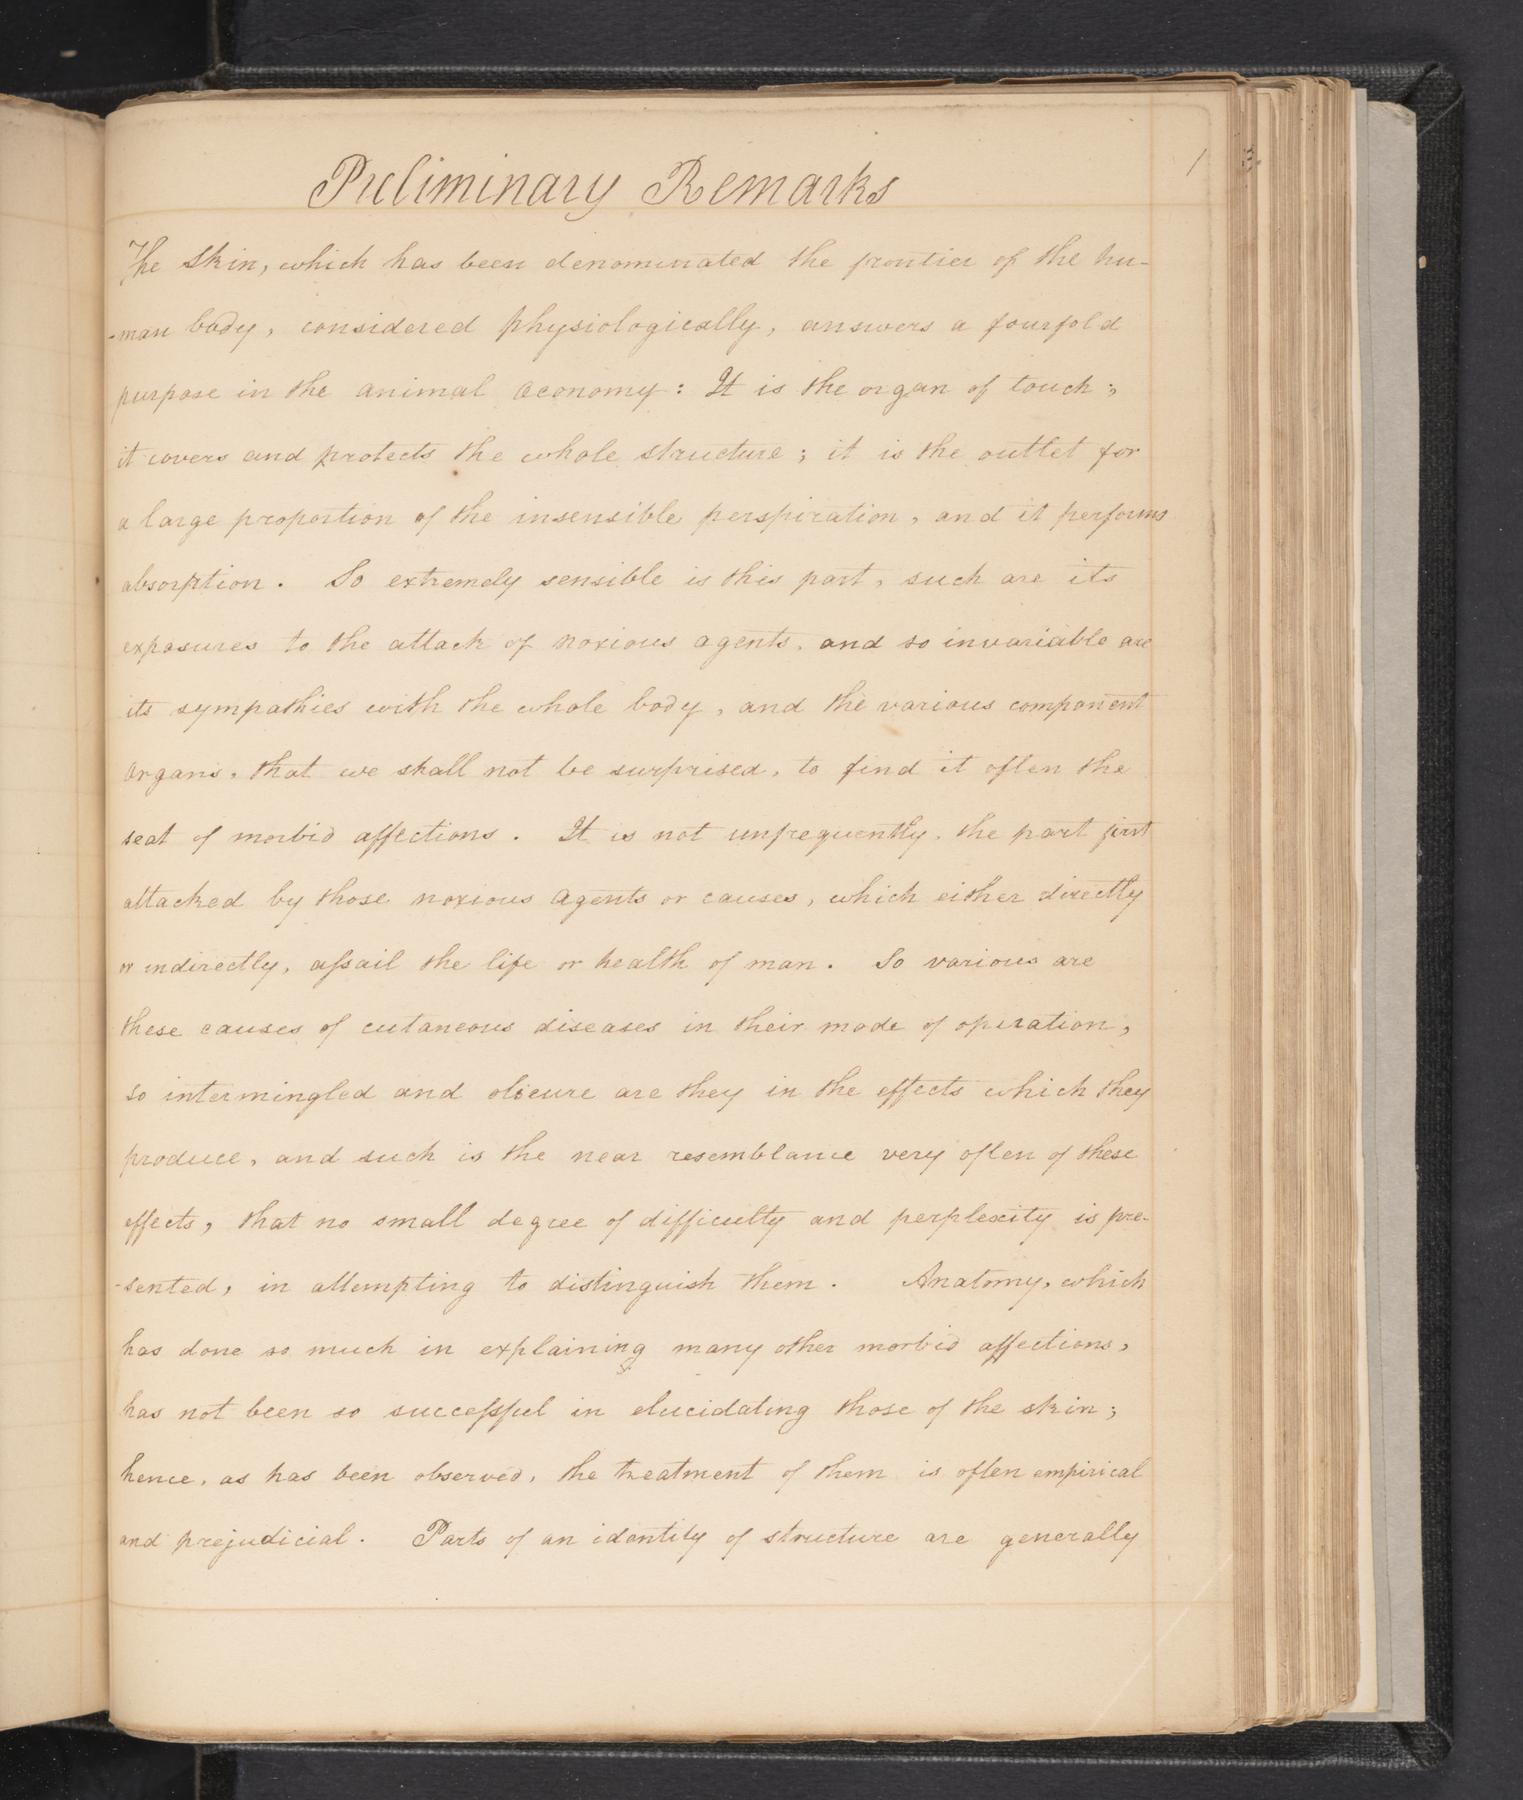 Preliminary Remarks
1
3.
The Skin, which has been denominated the frontier of the hu-
-man body, considered physiologically, answers a fourfold
purpose in the animal oeconomy: It is the organ of touch;
it covers and protects the whole structure; it is the outlet for
a large proportion of the insensible perspiration, and it performs
absorption. So extremely sensible is this part, such are its
exposures to the attack of noxious agents, and so invariable are
its sympathies with the whole body, and the various component
organs, that we shall not be surprised, to find it often the
seat of morbid affections. It is not unfrequently, the part first
attacked by those noxious agents or causes, which either directly
or indirectly, aſsail the life or health of man. So various are
these causes of cutaneous diseases in their mode of operation,
so intermingled and obscure are they in the effects which they
produce, and such is the near resemblance very often of these
effects, that no small degree of difficulty and perplexity is pre-
-sented, in attempting to distinguish them. Anatomy, which
has done so much in explaining many other morbid affections,
has not been so succeſsful in elucidating those of the skin;
hence, as has been observed, the treatment of them is often empirical
and prejudicial. Parts of an identity of structure are generally